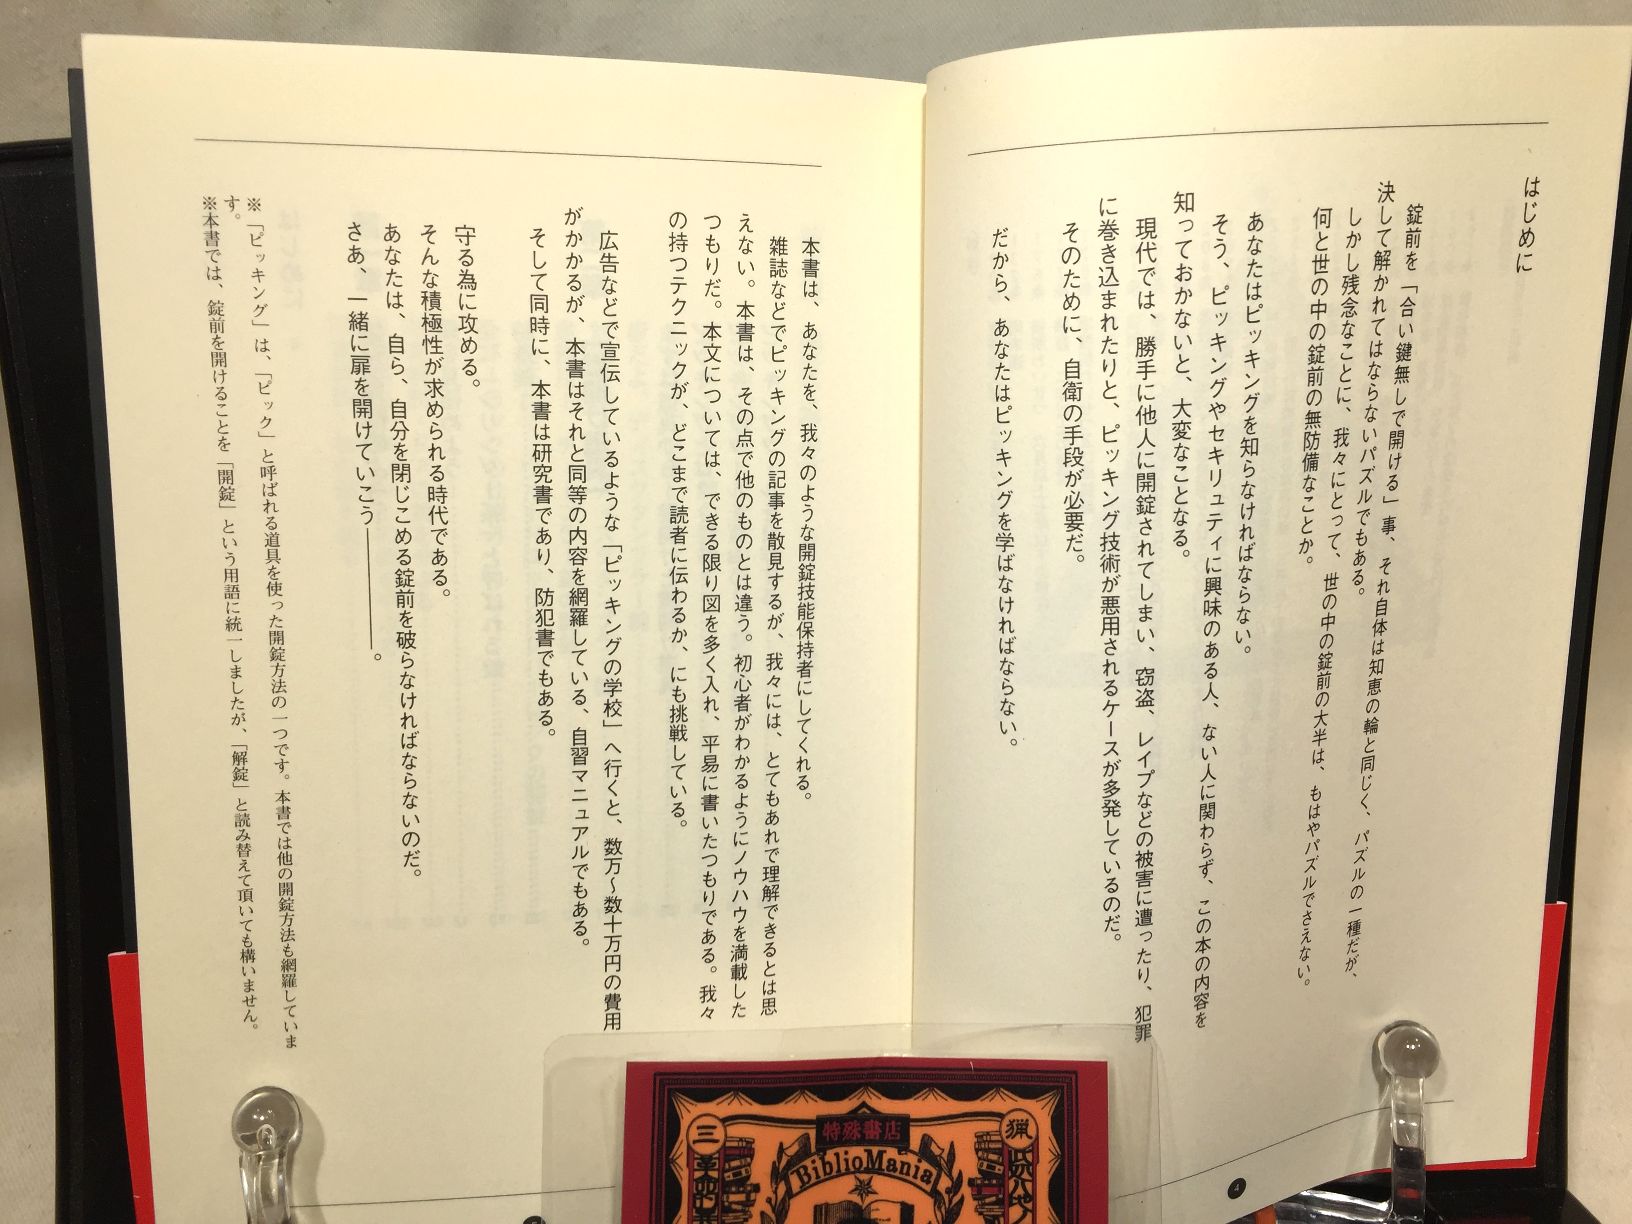 はじめに
錠前を「合い鍵無しで開ける」事、それ自体は知恵の輪と同じく、パズルの一種だが、
決して解かれてはならないパズルでもある。
しかし残念なことに、我々にとって、世の中の錠前の大半は、もはやパズルでさえない。
何と世の中の錠前の無防備なことか。
あなたはピッキングを知らなければならない。
そう、ピッキングやセキリュティに興味のある人、ない人に関わらず、この本の内容を
知っておかないと、大変なことなる。
現代では、勝手に他人に開錠されてしまい、窃盗、レイプなどの被害に遭ったり、犯罪
に巻き込まれたりと、ピッキング技術が悪用されるケースが多発しているのだ。
そのために、自衛の手段が必要だ。
だから、あなたはピッキングを学ばなければならない。
4
本書は、あなたを、我々のような開錠技能保持者にしてくれる。
雑誌などでピッキングの記事を散見するが、我々には、とてもあれで理解できるとは思
えない。本書は、その点で他のものとは違う。初心者がわかるようにノウハウを満載した
つもりだ。本文については、できる限り図を多く入れ、平易に書いたつもりである。我々
の持つテクニックが、どこまで読者に伝わるか、にも挑戦している。
広告などで宣伝しているような「ピッキングの学校」へ行くと、数万〜数十万円の費用
がかかるが、本書はそれと同等の内容を網羅している、自習マニュアルでもある。
そして同時に、本書は研究書であり、防犯書でもある。
守る為に攻める。
そんな積極性が求められる時代である。
あなたは、自ら、自分を閉じこめる錠前を破らなければならないのだ。
さあ、一緒に扉を開けていこう――――。
※「ピッキング」は、「ピック」と呼ばれる道具を使った開錠方法の一つです。本書では他の開錠方法も網羅していま
す。
※本書では、錠前を開けることを「開錠」という用語に統一しましたが、「解錠」と読み替えて頂いても構いません。
特殊書店
BiblioMania
三
猟